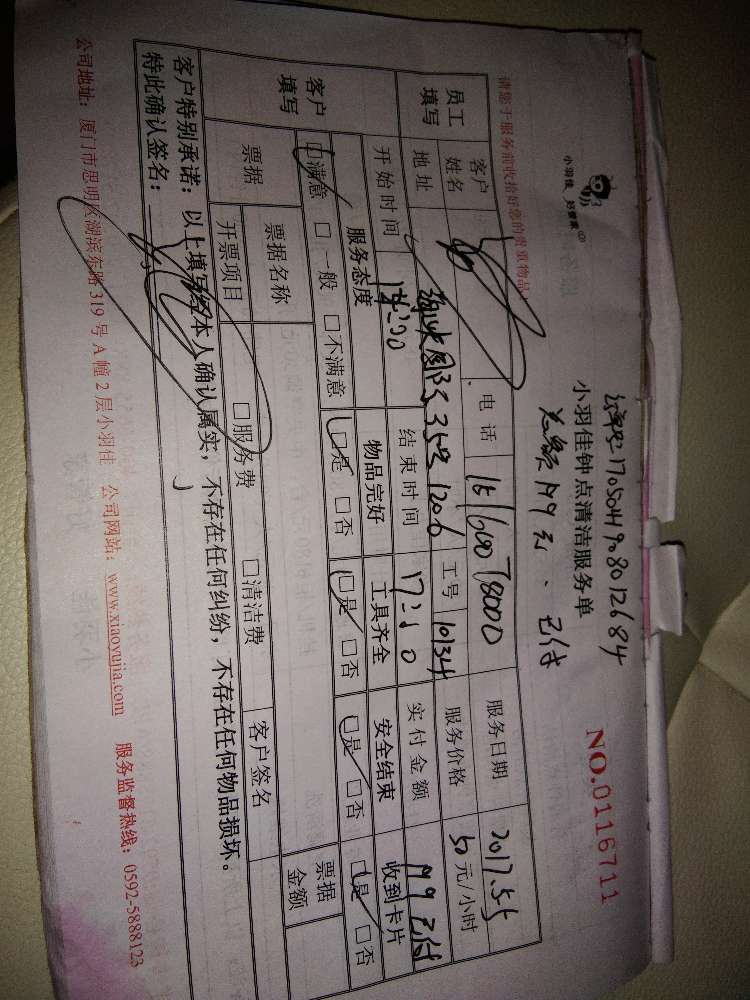 小羽佳 好管家
NO.0116711
小羽佳钟点清洁服务单
已付
请您于服务前收拾好您的贵重物品!
员工填写
客户姓名
电话
服务日期 2017.5.5
地址
工号 10134
服务价格 50元/小时
开始时间
结束时间
实付金额 149已付
客户填写
服务态度 物品完好 工具齐全 安全结束 收到卡片
☑满意 □一般 □不满意 ☑是 □否 ☑是 □否 ☑是 □否 ☑是 □否
票据
票据名称
票据金额
开票项目 □服务费 □清洁费 客户签名
客户特别承诺:以上填写经本人确认属实,不存在任何纠纷,不存在任何物品损坏。
特此确认签名:
公司地址:厦门市思明区湖滨东路319号A幢2层小羽佳 公司网站:www.xiaoyujia.com 服务监督热线:0592-5888123